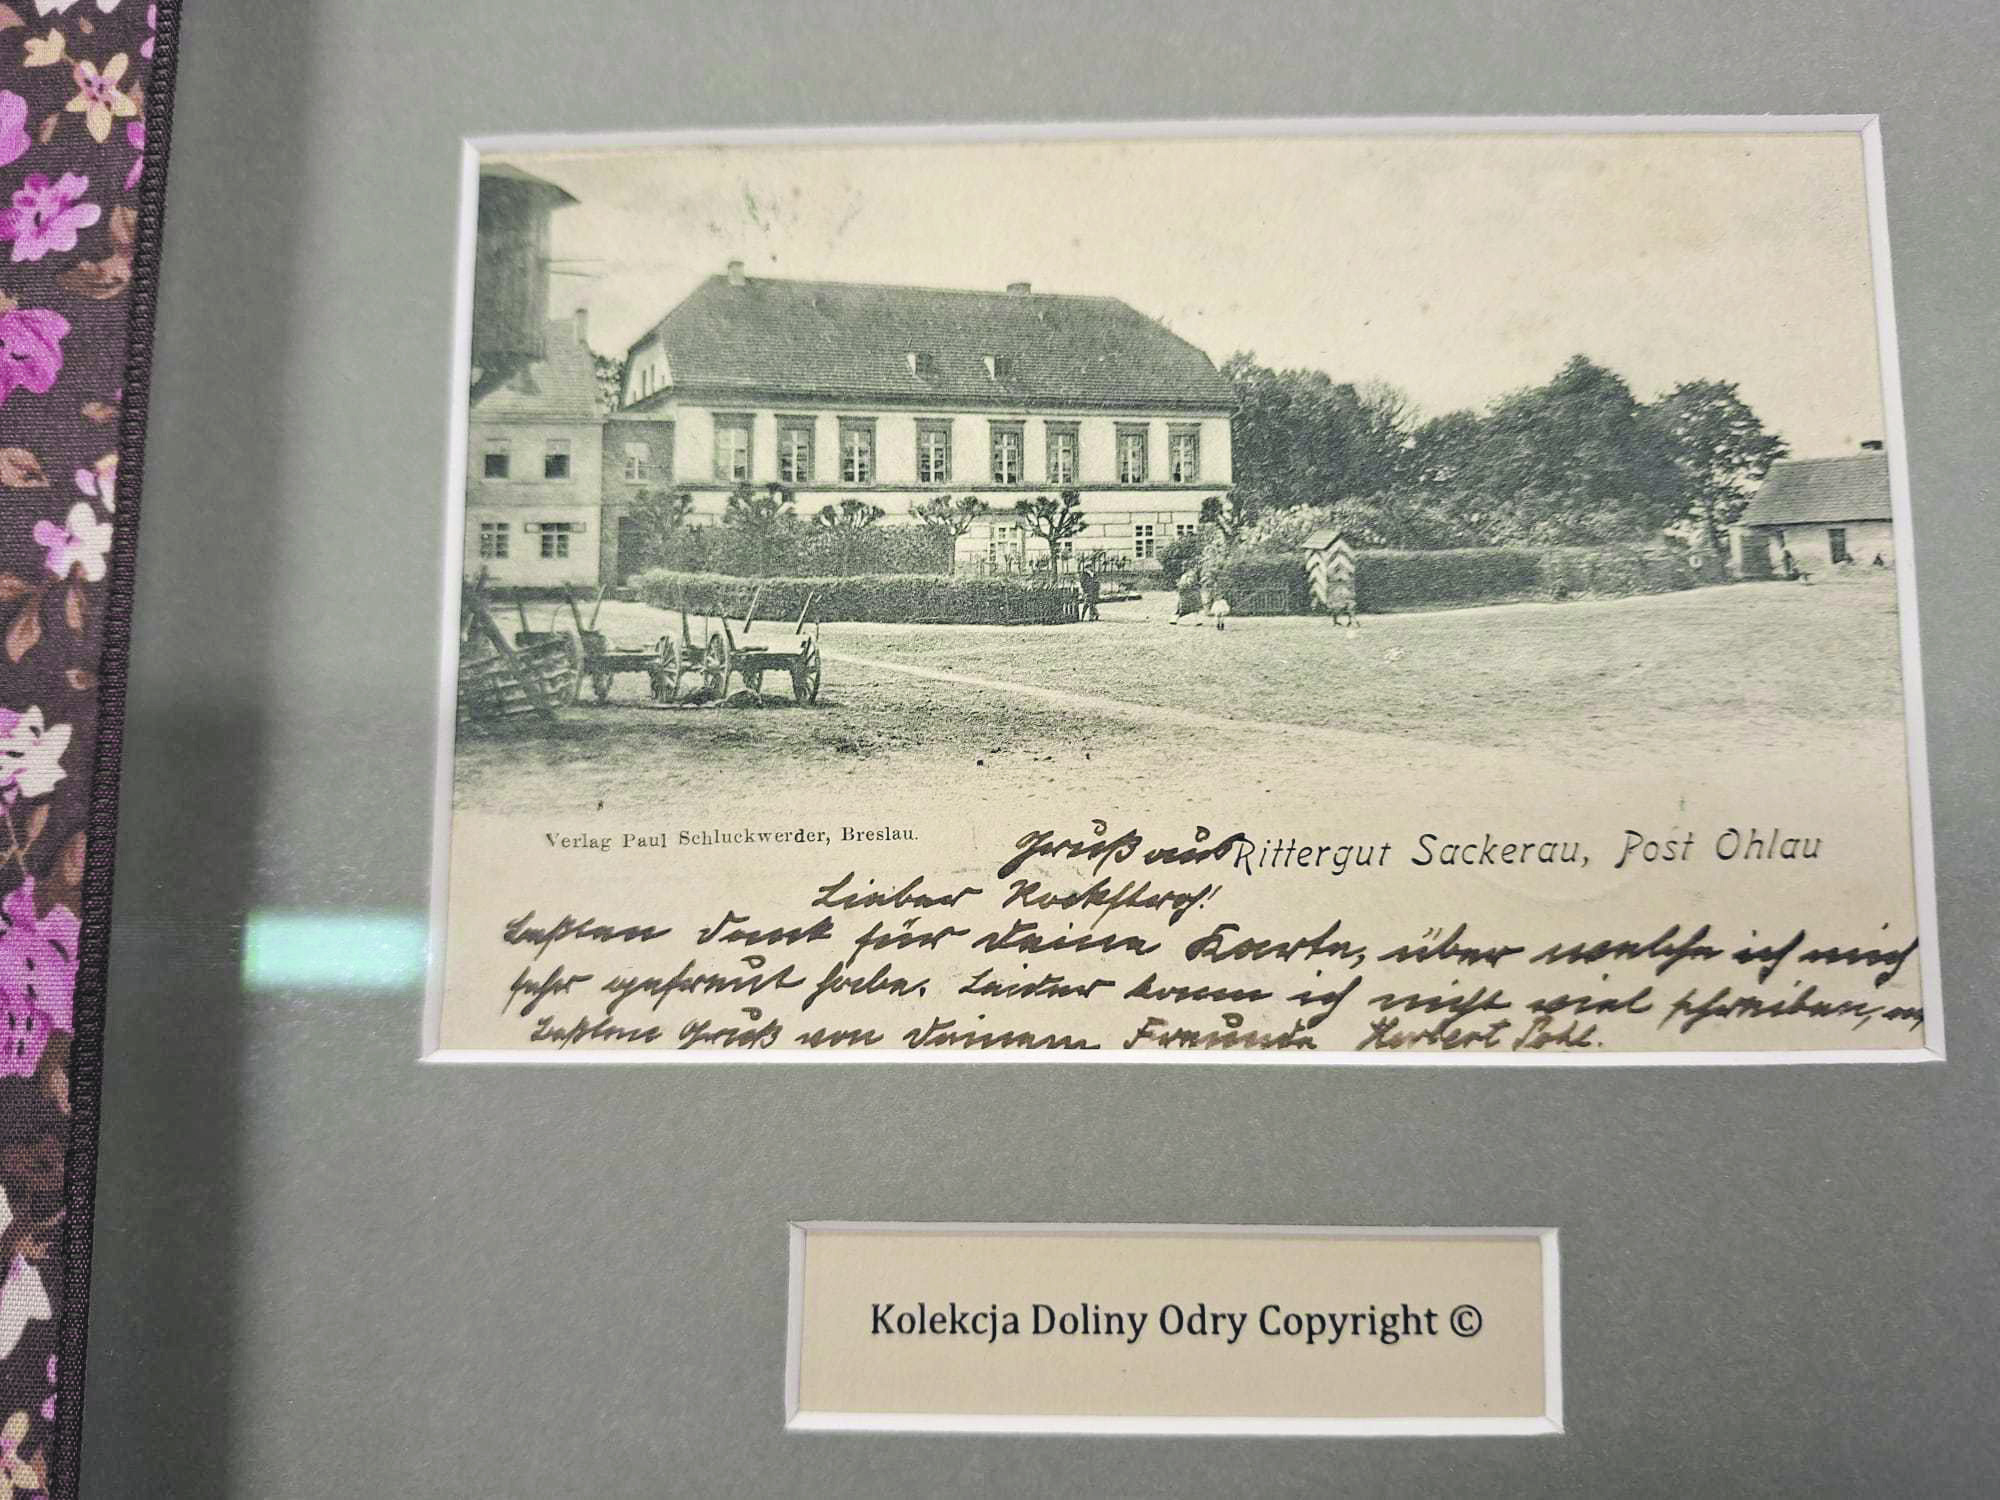 Verlag Paul Schluckwerder, Breslau.
Gruß aus Rittergut Sackerau, Post Ohlau
Lieber
Besten Dank für Deine Karte, über welche ich mich
sehr gefreut habe. Leider kann ich nicht viel schreiben,
Besten Gruß von Deinem Freunde Herbert Pohl.
Kolekcja Doliny Odry Copyright ©